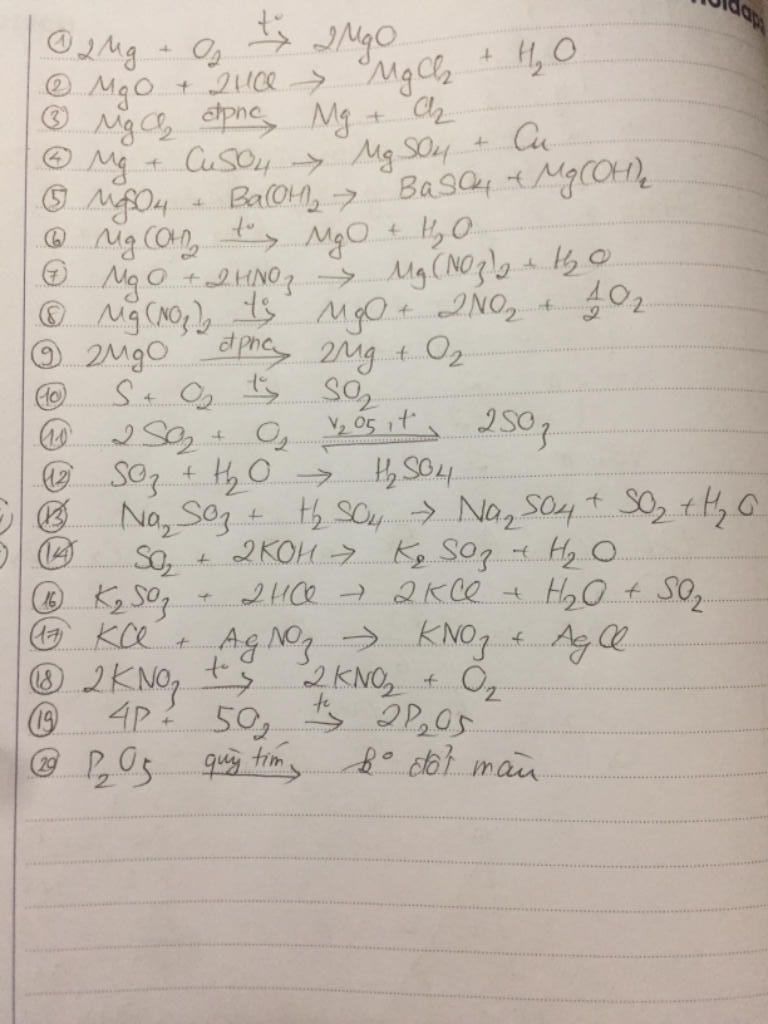 ① 2Mg + O₂ →(t°) 2MgO
② MgO + 2HCl → MgCl₂ + H₂O
③ MgCl₂ →(đpnc) Mg + Cl₂
④ Mg + CuSO₄ → MgSO₄ + Cu
⑤ MgSO₄ + Ba(OH)₂ → BaSO₄ + Mg(OH)₂
⑥ Mg(OH)₂ →(t°) MgO + H₂O
⑦ MgO + 2HNO₃ → Mg(NO₃)₂ + H₂O
⑧ Mg(NO₃)₂ →(t°) MgO + 2NO₂ + 1/2 O₂
⑨ 2MgO →(đpnc) 2Mg + O₂
⑩ S + O₂ →(t°) SO₂
⑪ 2SO₂ + O₂ ⇌(V₂O₅, t°) 2SO₃
⑫ SO₃ + H₂O → H₂SO₄
⑬ Na₂SO₃ + H₂SO₄ → Na₂SO₄ + SO₂ + H₂O
⑭ SO₂ + 2KOH → K₂SO₃ + H₂O
⑯ K₂SO₃ + 2HCl → 2KCl + H₂O + SO₂
⑰ KCl + AgNO₃ → KNO₃ + AgCl
⑱ 2KNO₃ →(t°) 2KNO₂ + O₂
⑲ 4P + 5O₂ →(t°) 2P₂O₅
⑳ P₂O₅ →(quỳ tím) k° đổi màu